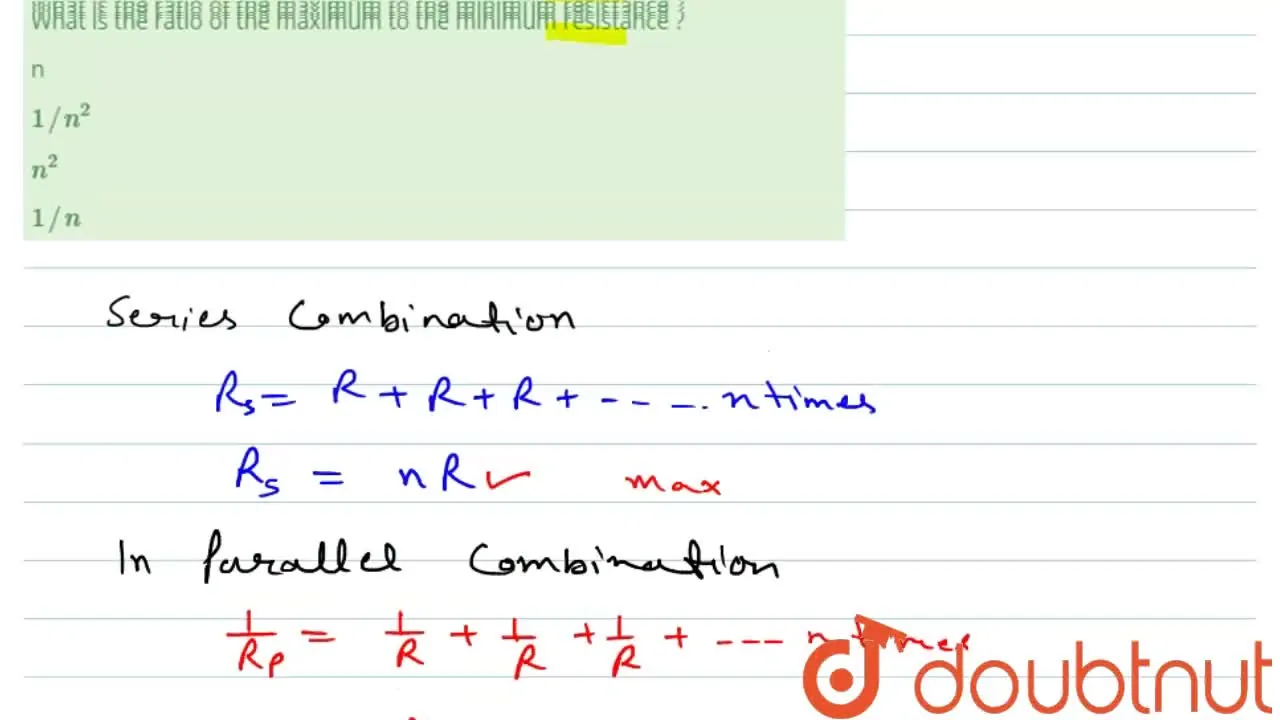 What is the ratio of the maximum to the minimum resistance ?
n
1/n²
n²
1/n
Series Combination
Rs = R + R + R + - - - . n times
Rs = nR ✓ max
In Parallel Combination
1/Rp = 1/R + 1/R + 1/R + - - - n times
doubtnut